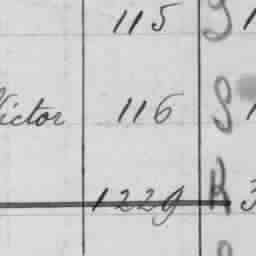 115 S 1
Victor 116 S 1
1229 R 3